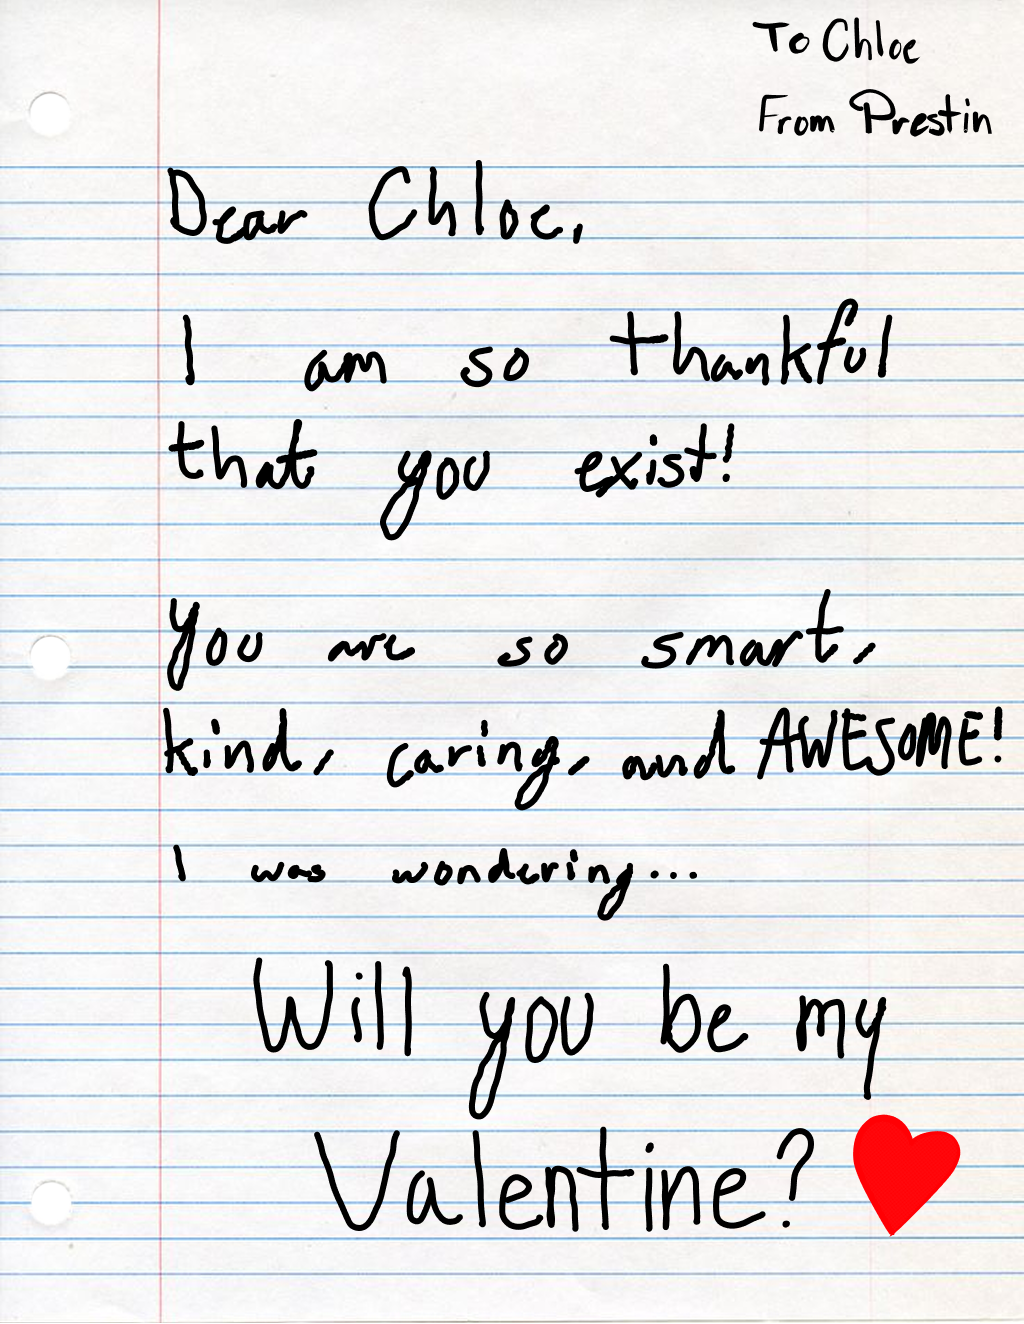 To Chloe
From Prestin
Dear Chloe,
I am so thankful
that you exist!
You are so smart,
kind, caring, and AWESOME!
I was wondering...
Will you be my
Valentine?